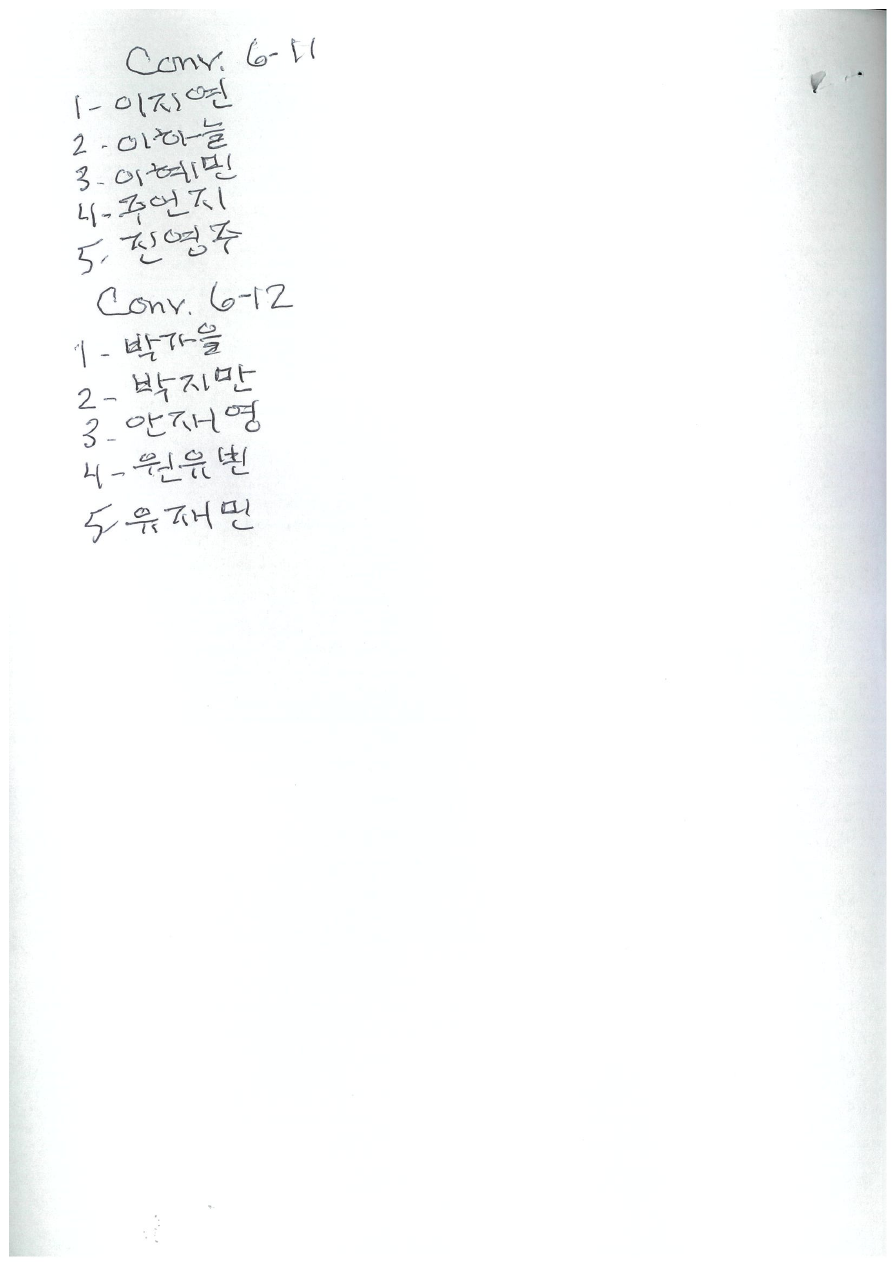 Conv. 6-11
1- 이지연
2- 이하늘
3- 이혜민
4- 주언지
5- 진영주
Conv. 6-12
1- 박가을
2- 박지만
3- 안재영
4- 원유빈
5- 유재민